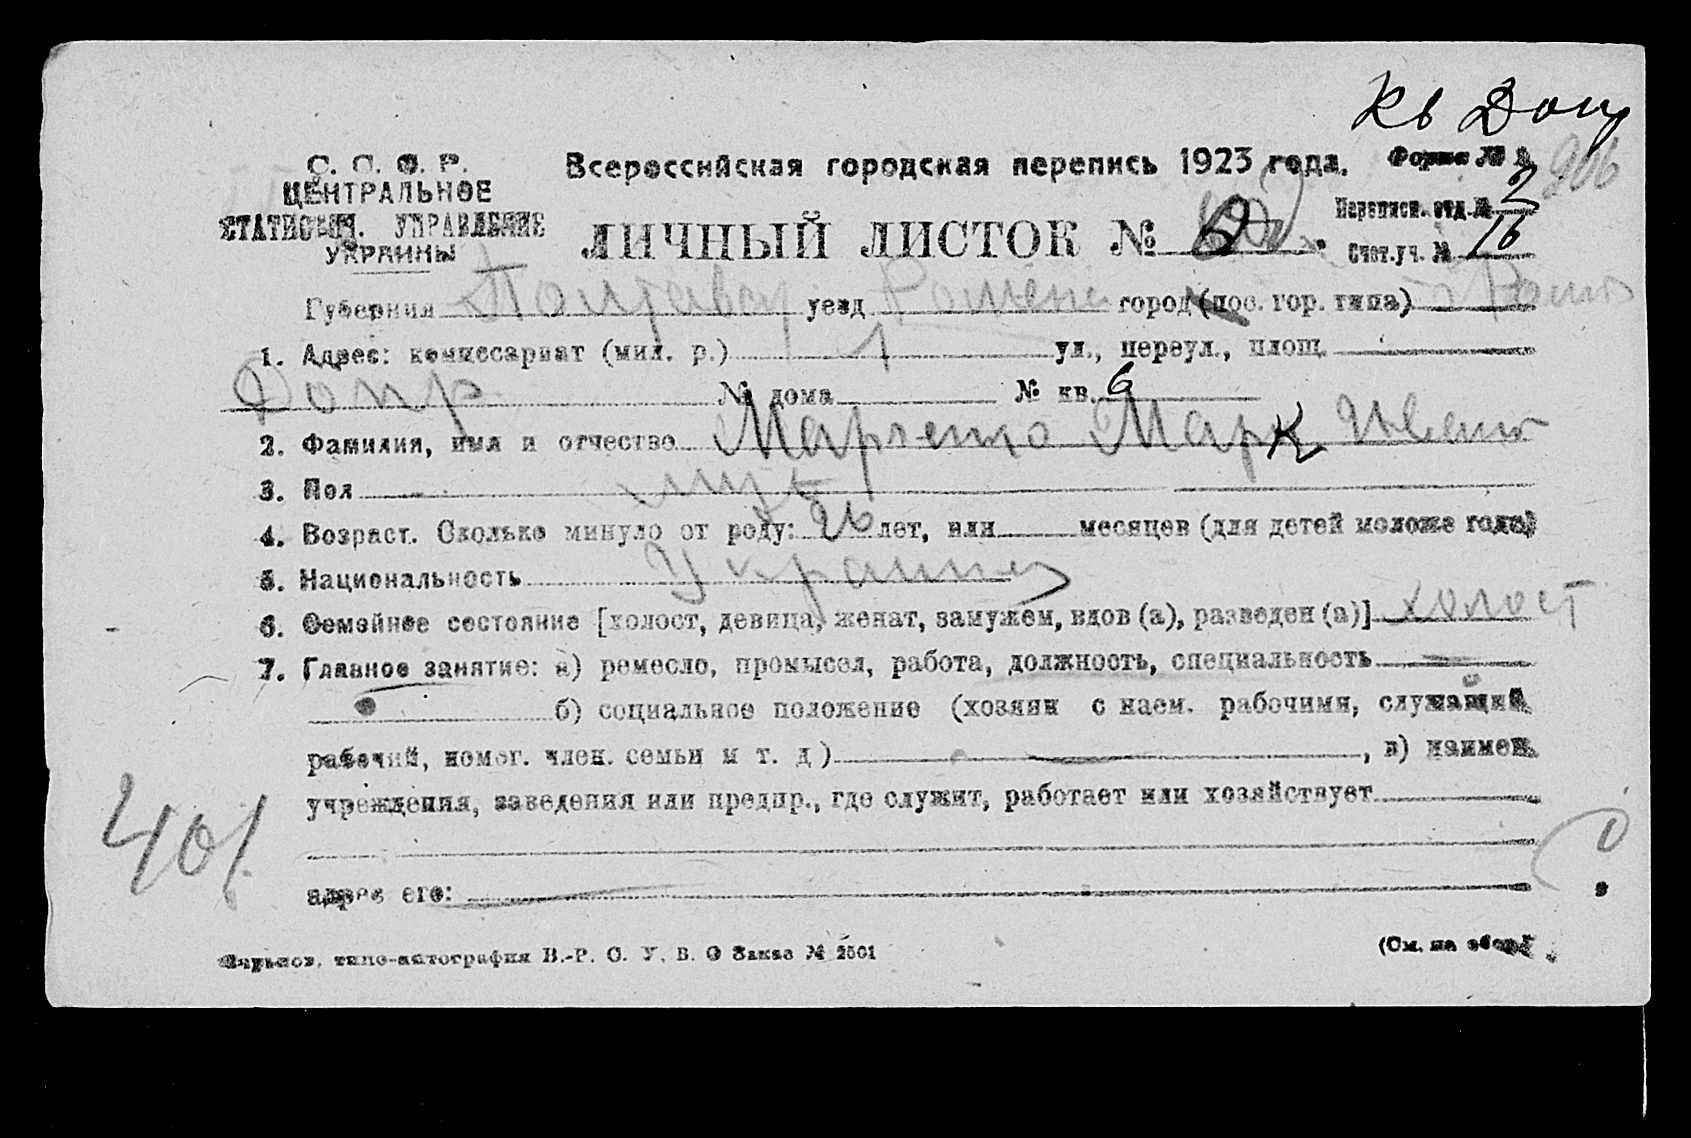 Кв Допр
С. С. С. Р.
Всероссийская городская перепись 1923 года.
Форма № 
906
ЦЕНТРАЛЬНОЕ
СТАТИСТИЧ. УПРАВЛЕНИЕ
УКРАИНЫ
Переписн. отд. № 2
ЛИЧНЫЙ ЛИСТОК №
Счет. уч. № 16
Губерния Полтавск уезд Роменск город (пос. гор. типа)
1. Адрес: комиссариат (мил. р.) 1 ул., переул., площ.
Допр № дома № кв. 6
2. Фамилия, имя и отчество Марченко Марк Иван
3. Пол муж
4. Возраст. Сколько минуло от роду: 26 лет, или месяцев (для детей моложе года)
5. Национальность Украинец
6. Семейное состояние [холост, девица, женат, замужем, вдов (а), разведен (а)] холост
7. Главное занятие: а) ремесло, промысел, работа, должность, специальность
б) социальное положение (хозяин с наем. рабочими, служащий,
рабочий, помог. член. семьи и т. д) , в) наимен.
учреждения, заведения или предпр., где служит, работает или хозяйствует
401
адрес его:
Харьков, типо-автография В.-Р. О. У. В. О Заказ № 2501
(См. на обор.)